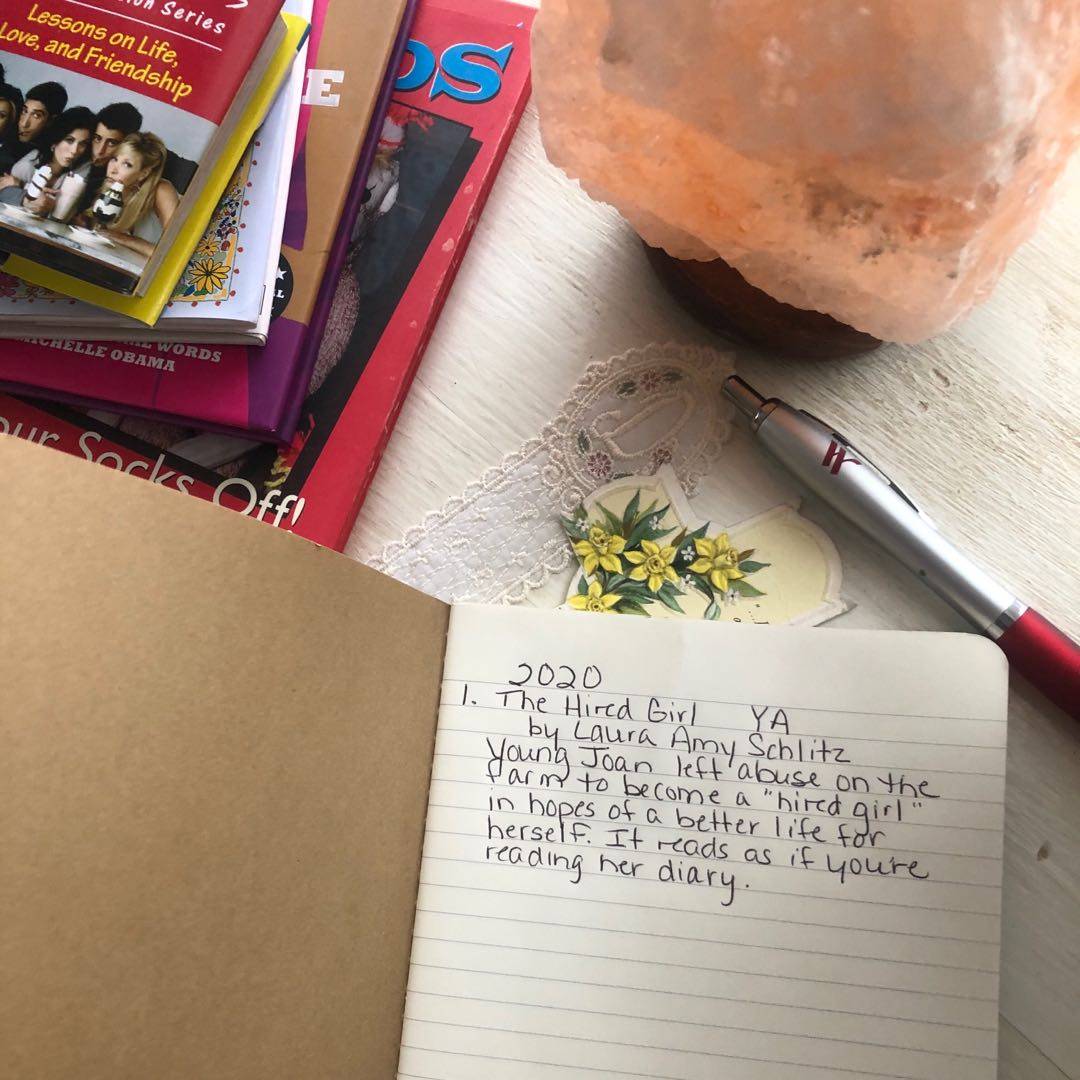 Series
Lessons on Life,
Love, and Friendship
E
DS
WORDS
MICHELLE OBAMA
our Socks Off!
2020
1. The Hired Girl YA
by Laura Amy Schlitz
Young Joan left abuse on the
farm to become a "hired girl"
in hopes of a better life for
herself. It reads as if you're
reading her diary.